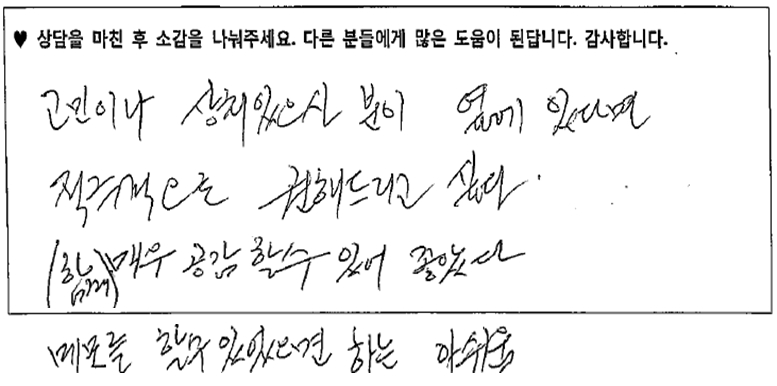 ♥ 상담을 마친 후 소감을 나눠주세요. 다른 분들에게 많은 도움이 된답니다. 감사합니다.
고민이나 상처있으신 분이 옆에 있다면
적극적으로 권해드리고 싶다.
(함께) 매우 공감 할수 있어 좋았다
메모를 할수 있었으면 하는 아쉬움